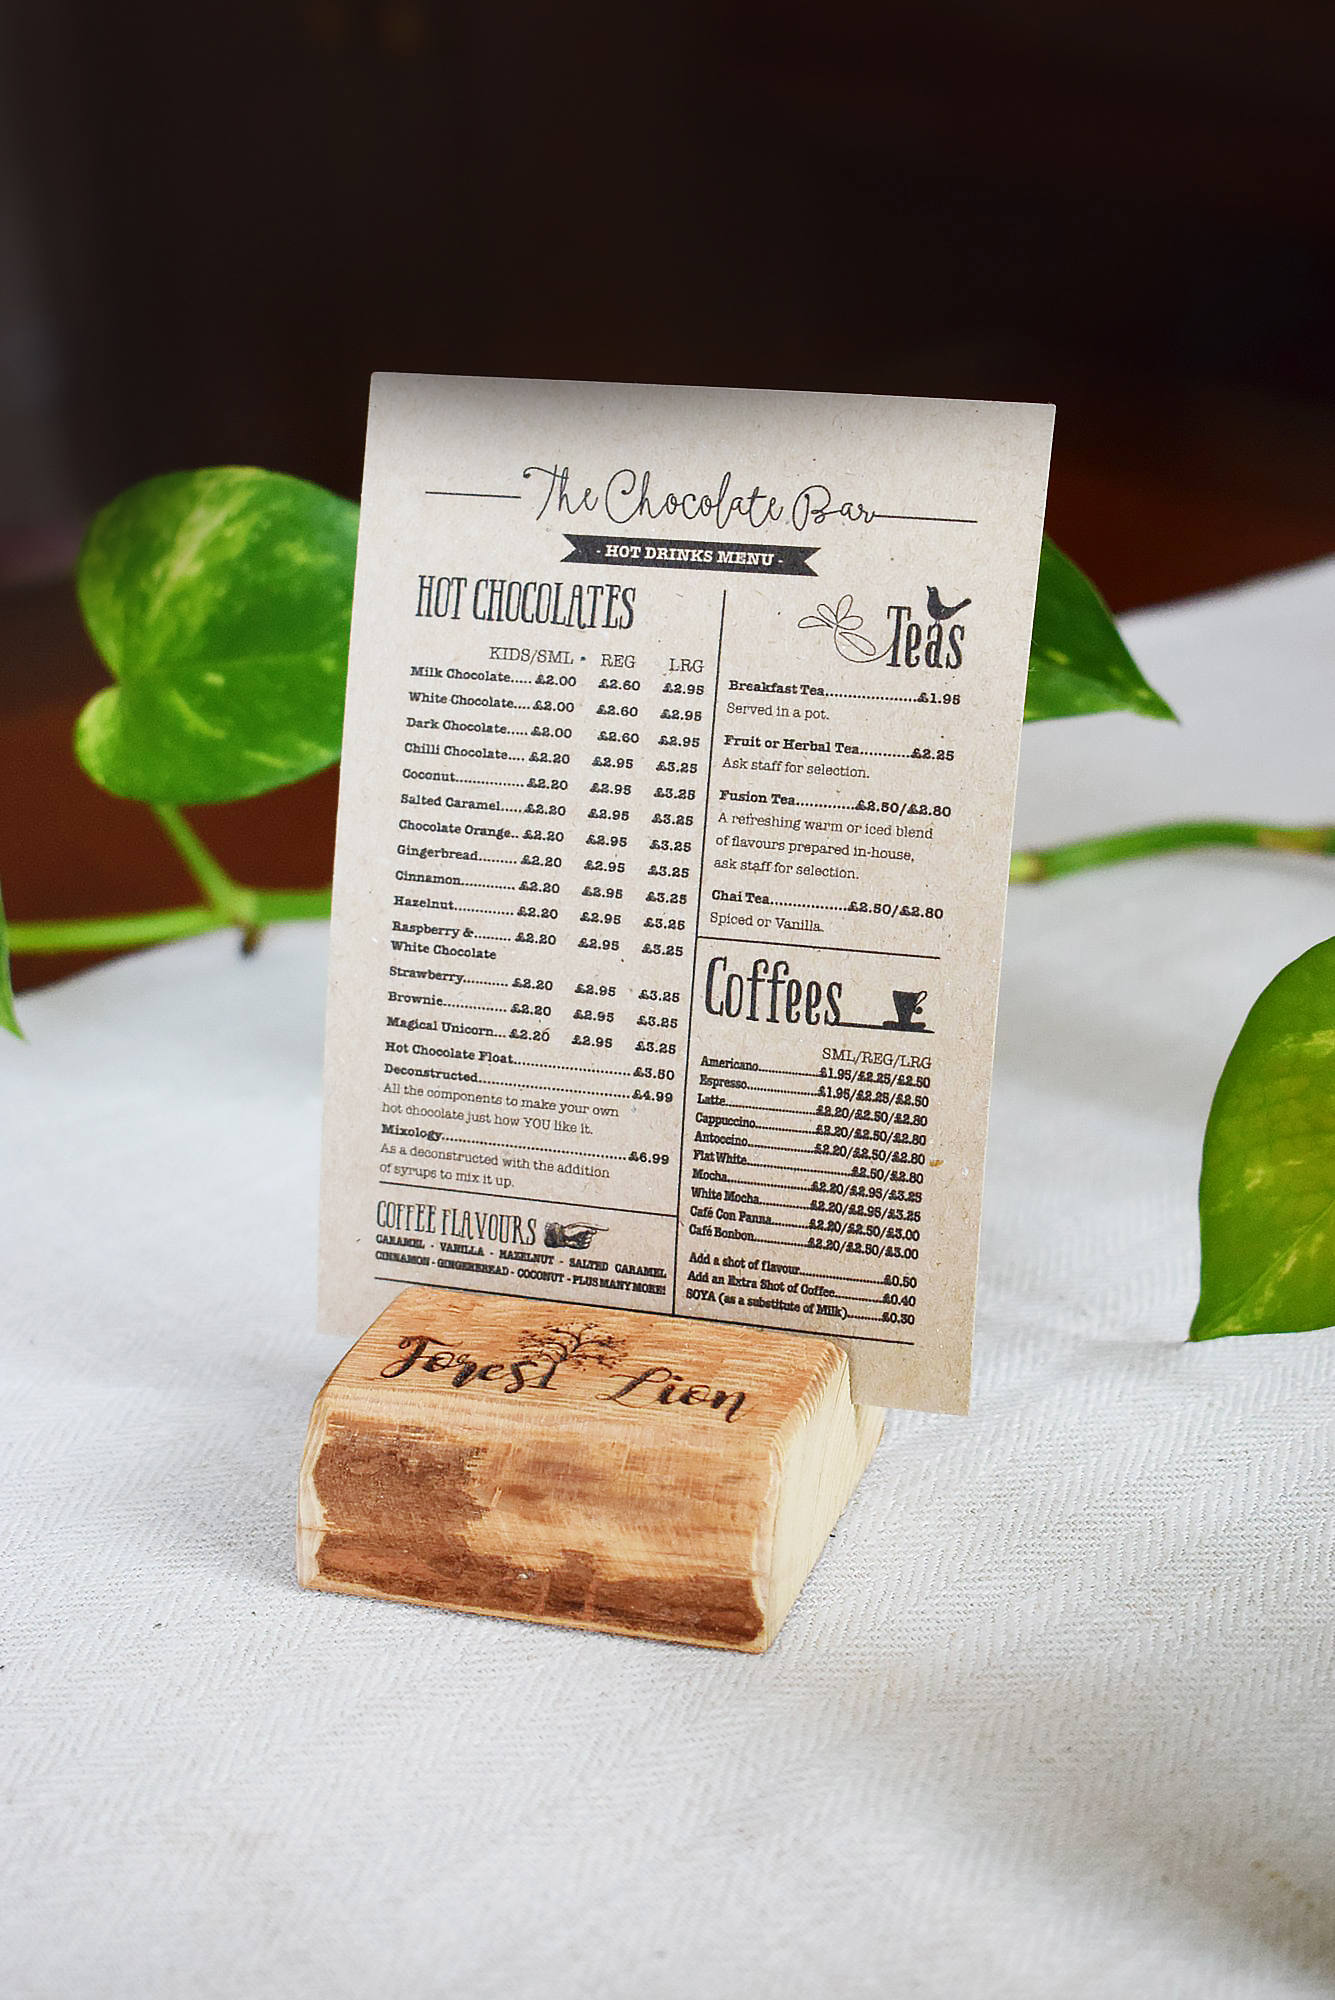 The Chocolate Bar
- HOT DRINKS MENU -
HOT CHOCOLATES
KIDS/SML • REG LRG
Milk Chocolate..... £2.00 £2.60 £2.95
White Chocolate.... £2.00 £2.60 £2.95
Dark Chocolate..... £2.00 £2.60 £2.95
Chilli Chocolate.... £2.20 £2.95 £3.25
Coconut............... £2.20 £2.95 £3.25
Salted Caramel..... £2.20 £2.95 £3.25
Chocolate Orange.. £2.20 £2.95 £3.25
Gingerbread......... £2.20 £2.95 £3.25
Cinnamon............. £2.20 £2.95 £3.25
Hazelnut.............. £2.20 £2.95 £3.25
Raspberry &......... £2.20 £2.95 £3.25
White Chocolate
Strawberry........... £2.20 £2.95 £3.25
Brownie................ £2.20 £2.95 £3.25
Magical Unicorn... £2.20 £2.95 £3.25
Hot Chocolate Float............................ £3.50
Deconstructed.................................... £4.99
All the components to make your own
hot chocolate just how YOU like it.
Mixology............................................ £6.99
As a deconstructed with the addition
of syrups to mix it up.
COFFEE FLAVOURS
CARAMEL - VANILLA - HAZELNUT - SALTED CARAMEL
CINNAMON - GINGERBREAD - COCONUT - PLUS MANY MORE!
Teas
Breakfast Tea....................£1.95
Served in a pot.
Fruit or Herbal Tea...........£2.25
Ask staff for selection.
Fusion Tea.............£2.50/£2.80
A refreshing warm or iced blend
of flavours prepared in-house,
ask staff for selection.
Chai Tea.................£2.50/£2.80
Spiced or Vanilla.
Coffees
SML/REG/LRG
Americano................£1.95/£2.25/£2.50
Espresso...................£1.95/£2.25/£2.50
Latte........................£2.20/£2.50/£2.80
Cappuccino...............£2.20/£2.50/£2.80
Antoccino.................£2.20/£2.50/£2.80
Flat White..........................£2.50/£2.80
Mocha......................£2.20/£2.95/£3.25
White Mocha.............£2.20/£2.95/£3.25
Café Con Panna.........£2.20/£2.50/£3.00
Café Bonbon..............£2.20/£2.50/£3.00
Add a shot of flavour.....................£0.50
Add an Extra Shot of Coffee............£0.40
SOYA (as a substitute of Milk)..........£0.30
Forest Lion